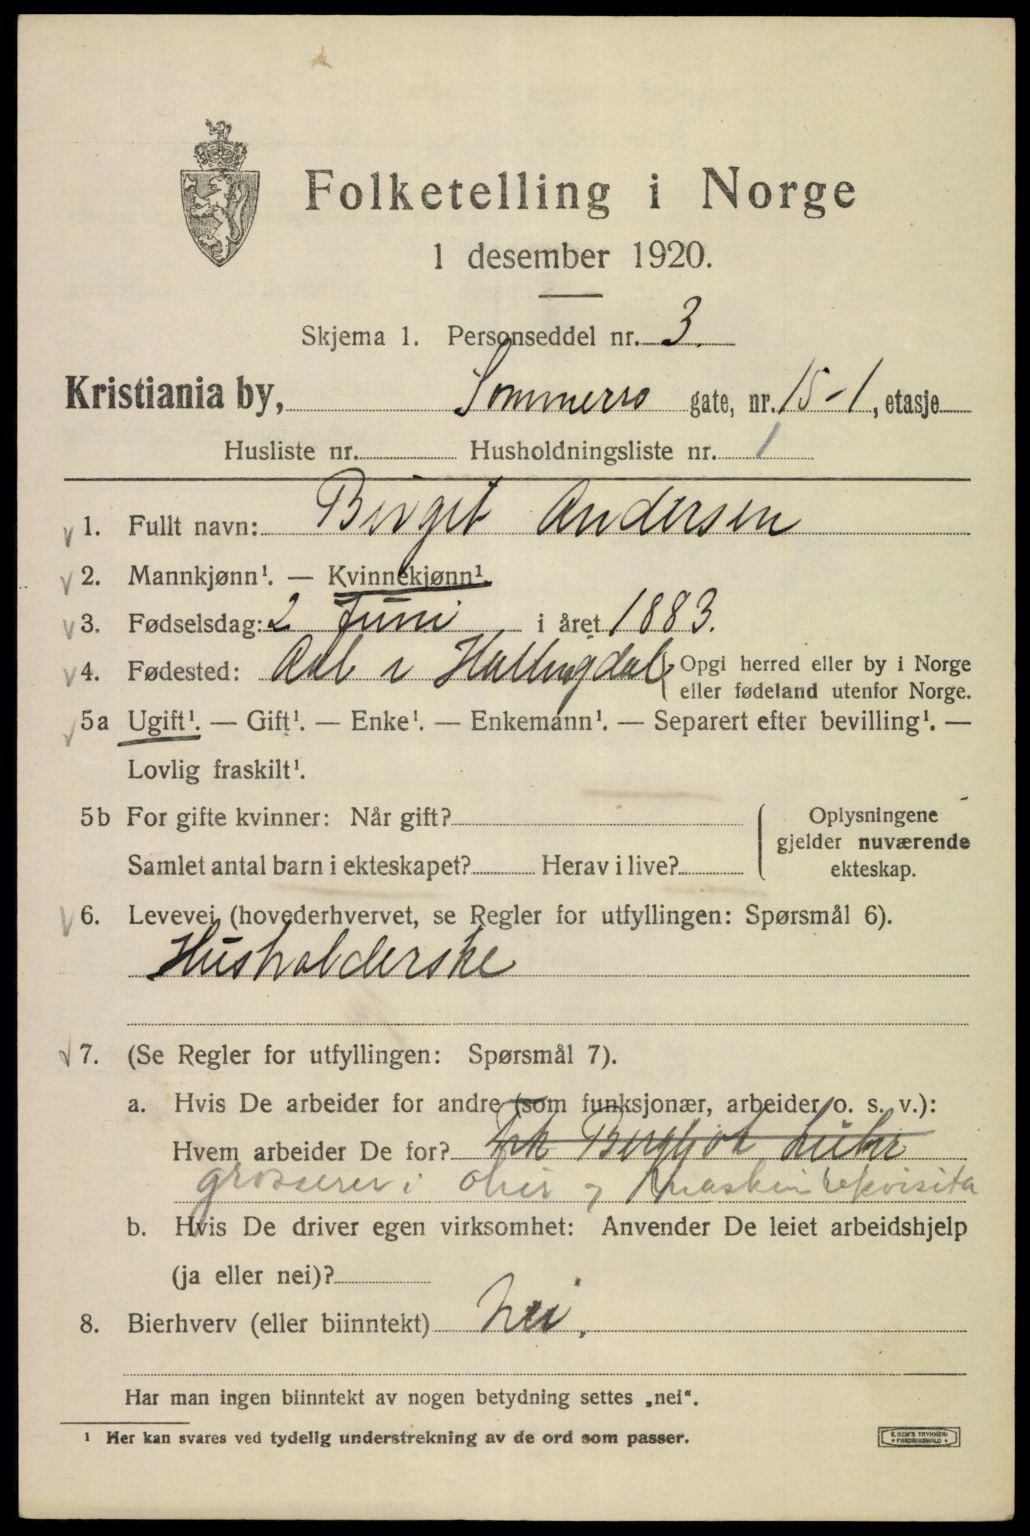 Folketelling i Norge
1 desember 1920.
Skjema 1. Personseddel nr. 3.
Kristiania by, Sommerro gate, nr. 15-1, etasje
Husliste nr. Husholdningsliste nr. 1
v 1. Fullt navn: Birgit Andersen
v 2. Mannkjønn¹. — Kvinnekjønn¹.
v 3. Fødselsdag: 2 Juni i året 1883.
v 4. Fødested: Aal i Hallingdal { Opgi herred eller by i Norge
eller fødeland utenfor Norge.
v 5a Ugift¹. — Gift¹. — Enke¹. — Enkemann¹. — Separert efter bevilling¹. —
Lovlig fraskilt¹.
5b For gifte kvinner: Når gift?
Samlet antal barn i ekteskapet? Herav i live?
Oplysningene
gjelder nuværende
ekteskap.
v 6. Levevei (hovederhvervet, se Regler for utfyllingen: Spørsmål 6).
Husholderske
v 7. (Se Regler for utfyllingen: Spørsmål 7).
a. Hvis De arbeider for andre (som funksjonær, arbeider o. s. v.):
Hvem arbeider De for? Frk Bergljot
grosserer i oljer og maskinrekvisita
b. Hvis De driver egen virksomhet: Anvender De leiet arbeidshjelp
(ja eller nei)?
8. Bierhverv (eller biinntekt) Nei.
Har man ingen biinntekt av nogen betydning settes „nei".
¹ Her kan svares ved tydelig understrekning av de ord som passer.
E. SEM'S TRYKKERI
FREDRIKSHALD